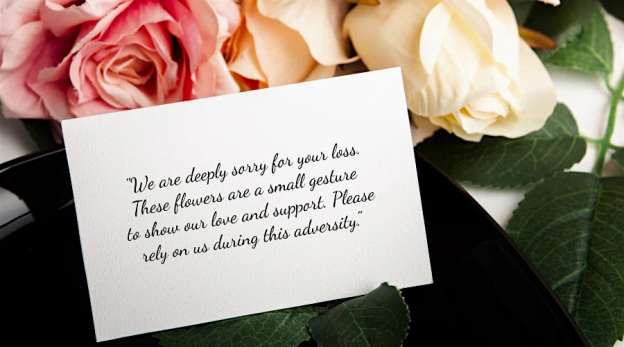 "We are deeply sorry for your loss.
These flowers are a small gesture
to show our love and support. Please
rely on us during this adversity."